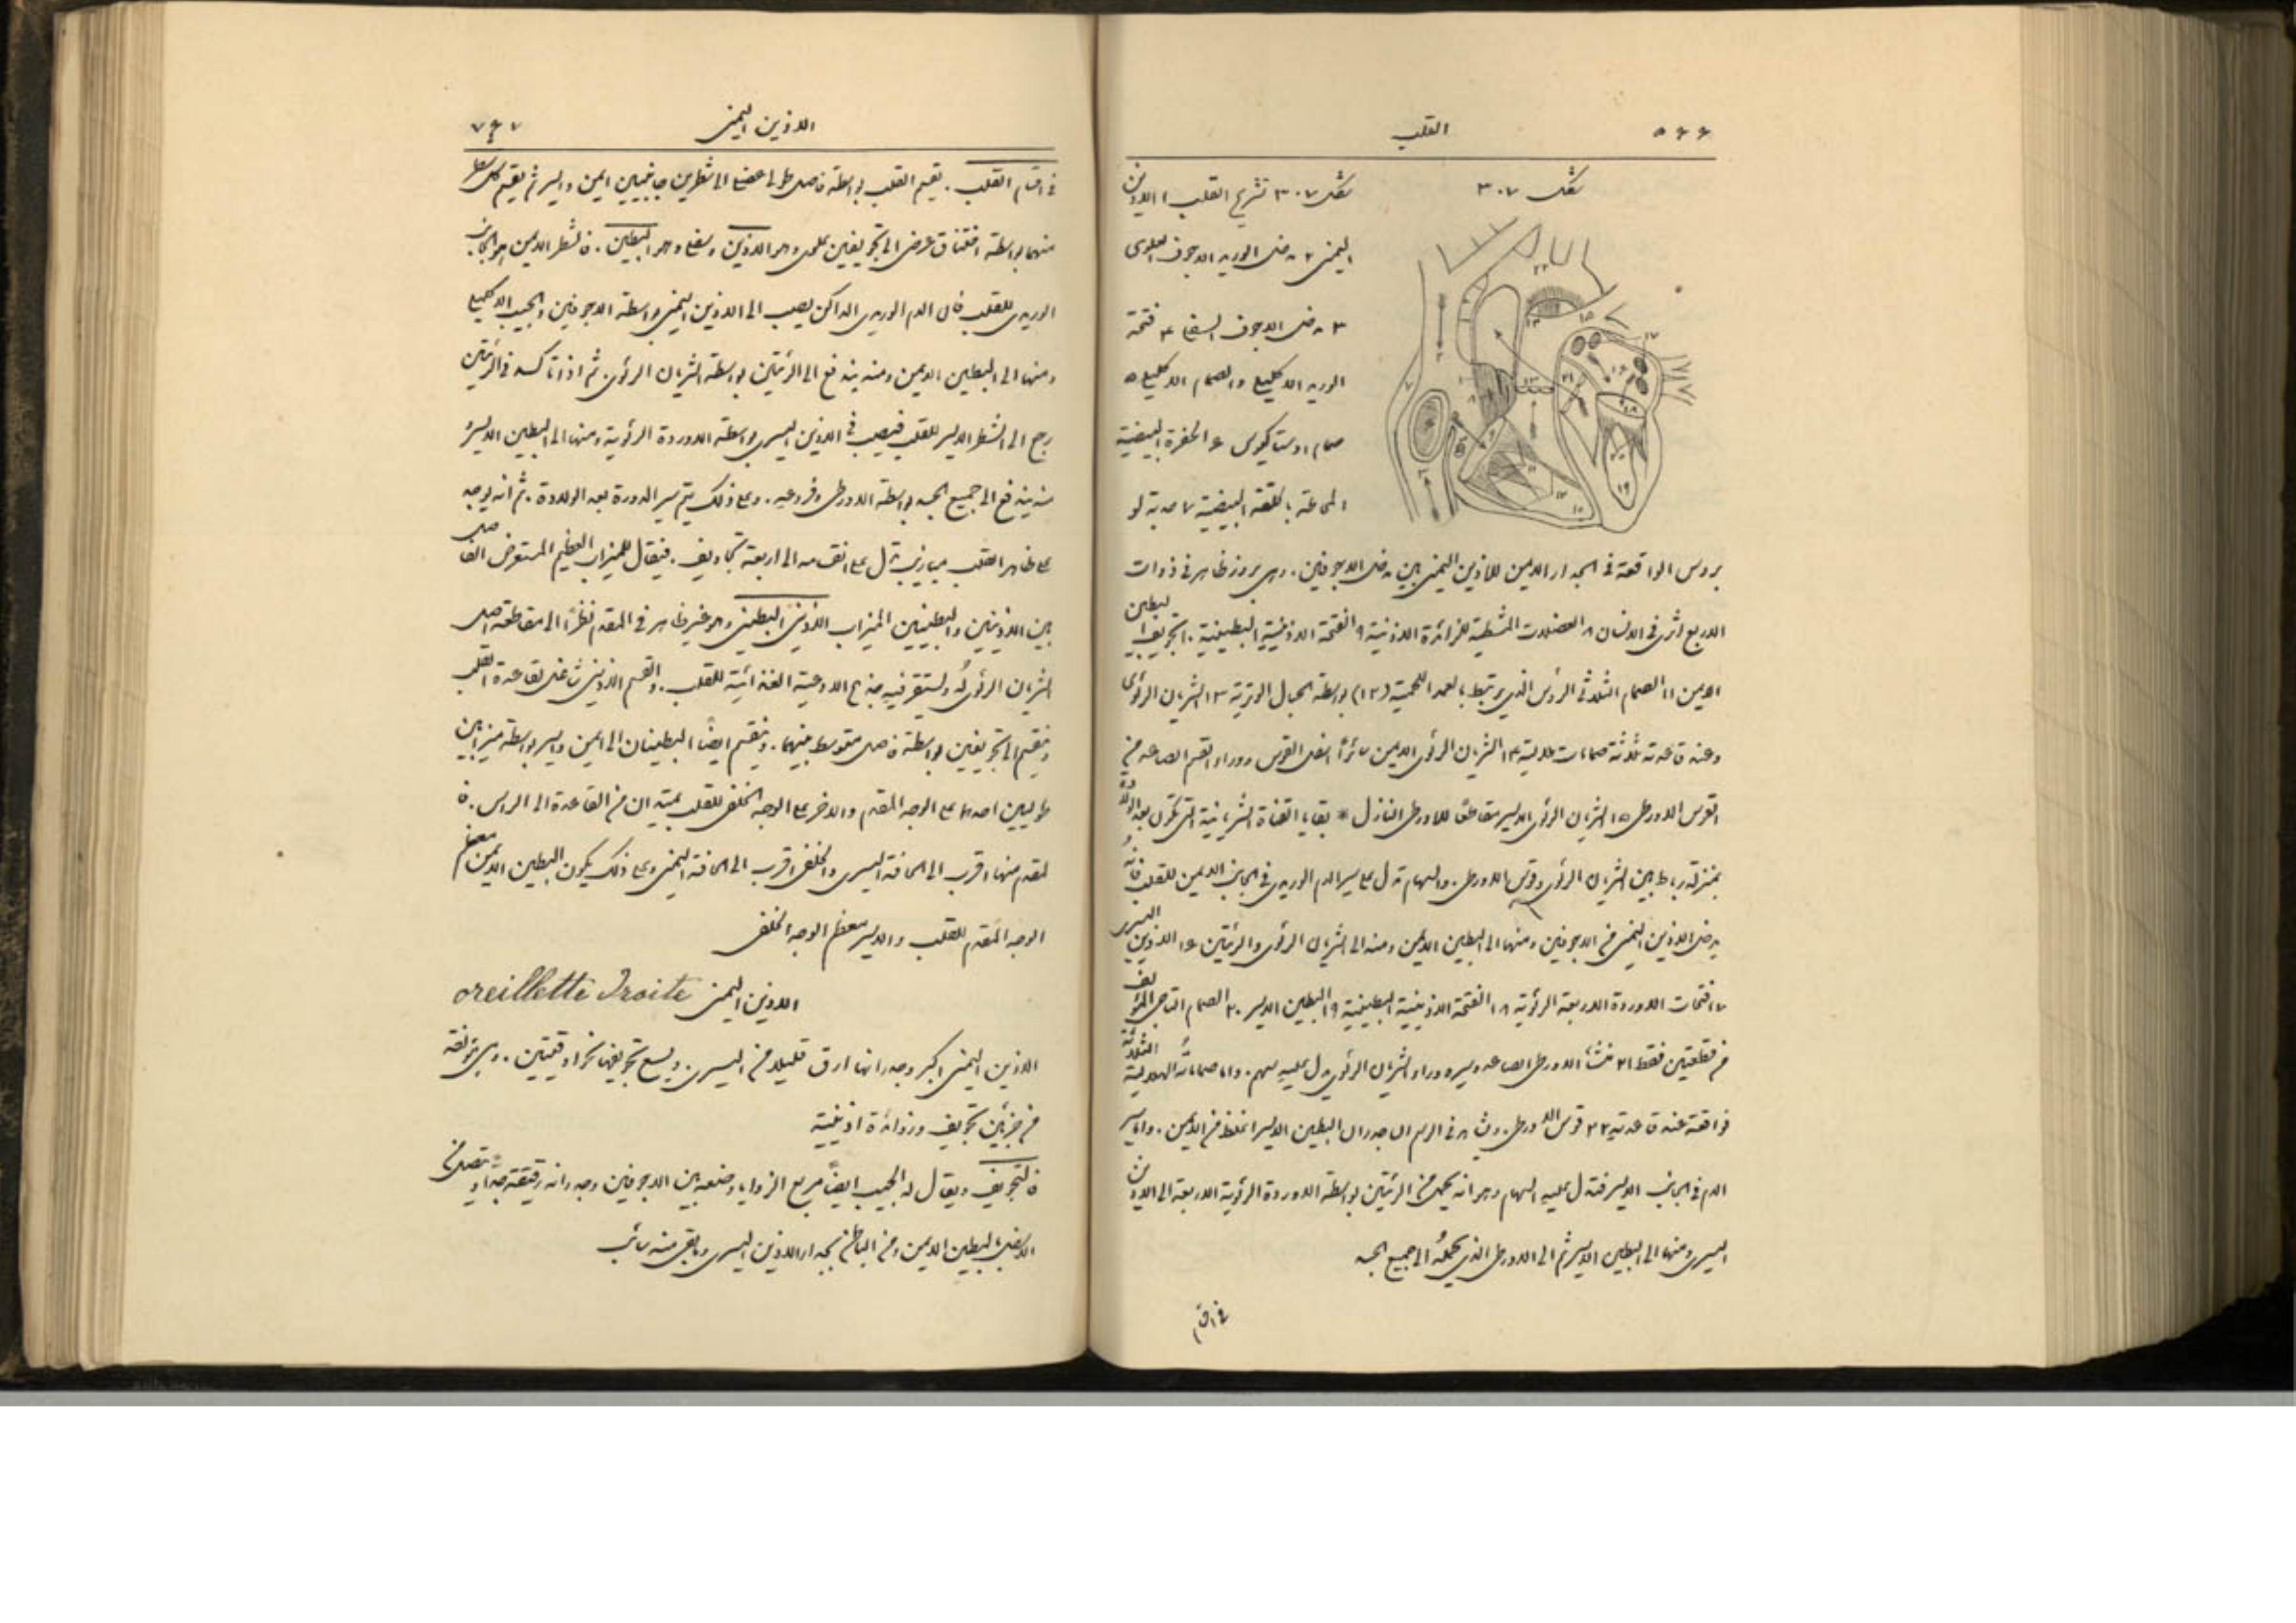 ٥٦٦
القلب
شكل ٣٠٧
شكل ٣٠٧ تشريح القلب ١ الاذين
اليمنى ٢ مدخل الوريد الاجوف العلوى
٣ مدخل الاجوف السفلى ٤ فتحة
الوريد الاكليلى والصمام الاكليلى ٥
صمام اوستاكيوس ٦ الحفرة البيضية
المحاطة بالحلقة البيضية ٧ حدبة لو
بروس الواقعة فى الجدار الايمن للاذين اليمنى بين مدخل الاجوفين . وهى بروز ظاهر فى ذوات
الاربع اثرى فى الانسان ٨ العضلات المشطية للزائدة الاذينية ٩ الفتحة الاذينية البطينية ١٠ تجويف البطين
الايمن ١١ الصمام الثلاثى الرؤس الذى يرتبط بالعمد اللحمية (١٢) بواسطة الحبال الوترية ١٣ الشريان الرئوى
وعند قاعدته ثلاثة صمامات هلالية ١٤ الشريان الرئوى الايمن سائرًا اسفل القوس ووراء القسم الصاعد من
القوس الاورطى ١٥ الشريان الرئوى الايسر مقاطعًا للاورطى النازل * بقايا القناة الشريانية التى تكون بعد الولادة
بمنزلة رباط بين الشريان الرئوى وقوس الاورطى . والسهام تدل على سير الدم الوريدى فى الجانب الايمن للقلب فانه
يدخل الاذين اليمنى من الاجوفين ومنها الى البطين الايمن ومنه الى الشريان الرئوى والرئتين ١٦ الاذين اليسرى
١٧ فتحات الاوردة الاربعة الرئوية ١٨ الفتحة الاذينية البطينية ١٩ البطين الايسر ٢٠ الصمام التاجى المؤلف
من قطعتين فقط ٢١ منشأ الاورطى الصاعد وسيره وراء الشريان الرئوى يدل عليه سهم . واما صماماته الهلالية الثلاثة
فواقعة عند قاعدته ٢٢ قوس الاورطى . ويشاهد فى الرسم ان جدران البطين الايسر اغلظ من الايمن . واما سير
الدم فى الجانب الايسر فتدل عليه السهام وهو انه يحمل من الرئتين بواسطة الاوردة الرئوية الاربعة الى الاذين
اليسرى ومنها الى البطين الايسر ثم الى الاورطى الذى يحمله الى جميع الجسد
فى اقسام
٧٦٧
الاذين اليمنى
فى اقسام القلب . يقسم القلب بواسطة فاصل طولى عضلى الى شطرين جانبيين ايمن وايسر ثم يقسم كل شطر
منهما بواسطة اختناق عرضى الى تجويفين علوى وهو الاذين وسفلى وهو البطين . فالشطر الايمن هو الجانب
الوريدى للقلب فان الدم الوريدى الداكن يصب الى الاذين اليمنى بواسطة الاجوفين والجيب الاكليلى
ومنها الى البطين الايمن ومنه يندفع الى الرئتين بواسطة الشريان الرئوى . ثم اذا تاكسد فى الرئتين
رجع الى الشطر الايسر للقلب فيصب فى الاذين اليسرى بواسطة الاوردة الرئوية ومنها الى البطين الايسر و
منه يندفع الى جميع الجسد بواسطة الاورطى وفروعه . وعلى ذلك يتم سير الدورة بعد الولادة . ثم انه يوجد
على ظاهر القلب ميازيب تدل على انقسامه الى اربعة تجاويف . فيقال للميزاب العظيم المستعرض الفاصل
بين الاذينين والبطينين الميزاب الاذينى البطينى وهو غير ظاهر فى المقدم نظرًا الى مقاطعة اصل
الشريان الرئوى له وتستقر فيه جذوع الاوعية الغذائية للقلب . والقسم الاذينى شاغل لقاعدة القلب
وينقسم الى تجويفين بواسطة فاصل متوسط بينهما . وينقسم ايضًا البطينان الى ايمن وايسر بواسطة ميزابين
طوليين احدهما على الوجه المقدم والاخر على الوجه الخلفى للقلب يمتدان من القاعدة الى الراس . فا
لمقدم منها اقرب الى الحافة اليسرى والخلفى اقرب الى الحافة اليمنى وعلى ذلك يكون البطين الايمن معظم
الوجه المقدم للقلب والايسر معظم الوجه الخلفى
الاذين اليمنى oreillette Droite
الاذين اليمنى اكبر وجدرانها ارق قليلا من اليسرى . ويسع تجويفها نحو اوقيتين . وهى مؤلفة
من جزئين تجويف وزائدة اذينية
فالتجويف ويقال له الجيب ايضًا مربع الزوايا وضعه بين الاجوفين وجدرانه رقيقة جدا وتتصل من
الاسفل بالبطين الايمن ومن الباطن بجدار الاذين اليسرى وما بقى منه سائب